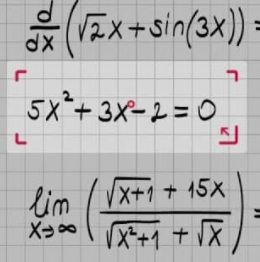 d/dx (√2x + sin(3x)) =
5x² + 3x - 2 = 0
lim x→∞ ((√(x+1) + 15x)/(√(x²+1) + √x)) =